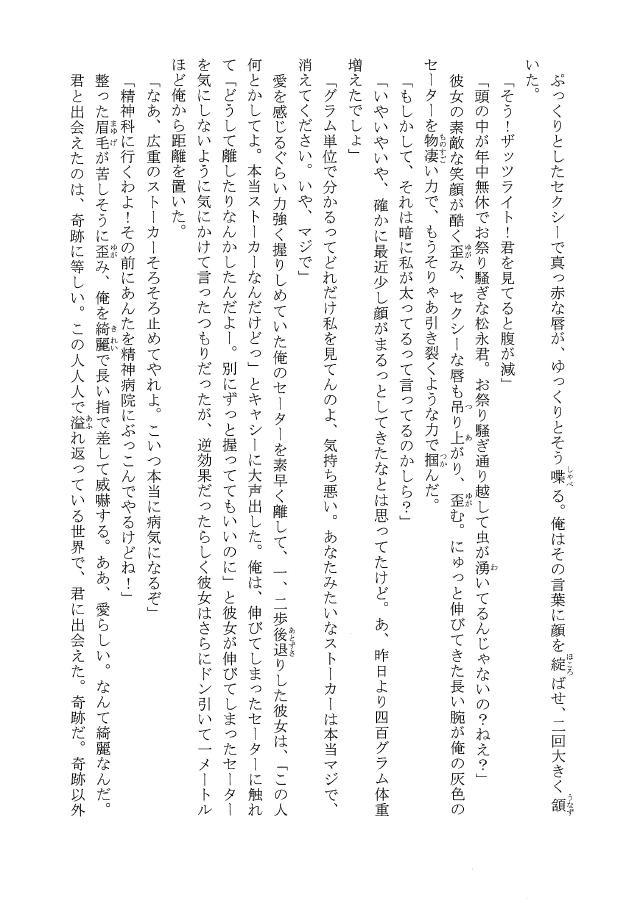 ぷっくりとしたセクシーで真っ赤な唇が、ゆっくりとそう喋る。俺はその言葉に顔を綻ばせ、二回大きく頷
いた。
「そう！ザッツライト！君を見てると腹が減」
「頭の中が年中無休でお祭り騒ぎな松永君。お祭り騒ぎ通り越して虫が湧いてるんじゃないの？ねえ？」
彼女の素敵な笑顔が酷く歪み、セクシーな唇も吊り上がり、歪む。にゅっと伸びてきた長い腕が俺の灰色の
セーターを物凄い力で、もうそりゃあ引き裂くような力で掴んだ。
「もしかして、それは暗に私が太ってるって言ってるのかしら？」
「いやいやいや、確かに最近少し顔がまるっとしてきたなとは思ってたけど。あ、昨日より四百グラム体重
増えたでしょ」
「グラム単位で分かるってどれだけ私を見てんのよ、気持ち悪い。あなたみたいなストーカーは本当マジで、
消えてください。いや、マジで」
愛を感じるぐらい力強く握りしめていた俺のセーターを素早く離して、一、二歩後退りした彼女は、「この人
何とかしてよ。本当ストーカーなんだけどっ」とキャシーに大声出した。俺は、伸びてしまったセーターに触れ
て「どうして離したりなんかしたんだよー。別にずっと握っててもいいのに」と彼女が伸びてしまったセーター
を気にしないように気にかけて言ったつもりだったが、逆効果だったらしく彼女はさらにドン引いて一メートル
ほど俺から距離を置いた。
「なあ、広重のストーカーそろそろ止めてやれよ。こいつ本当に病気になるぞ」
「精神科に行くわよ！その前にあんたを精神病院にぶっこんでやるけどね！」
整った眉毛が苦しそうに歪み、俺を綺麗で長い指で差して威嚇する。ああ、愛らしい。なんて綺麗なんだ。
君と出会えたのは、奇跡に等しい。この人人人で溢れ返っている世界で、君に出会えた。奇跡だ。奇跡以外